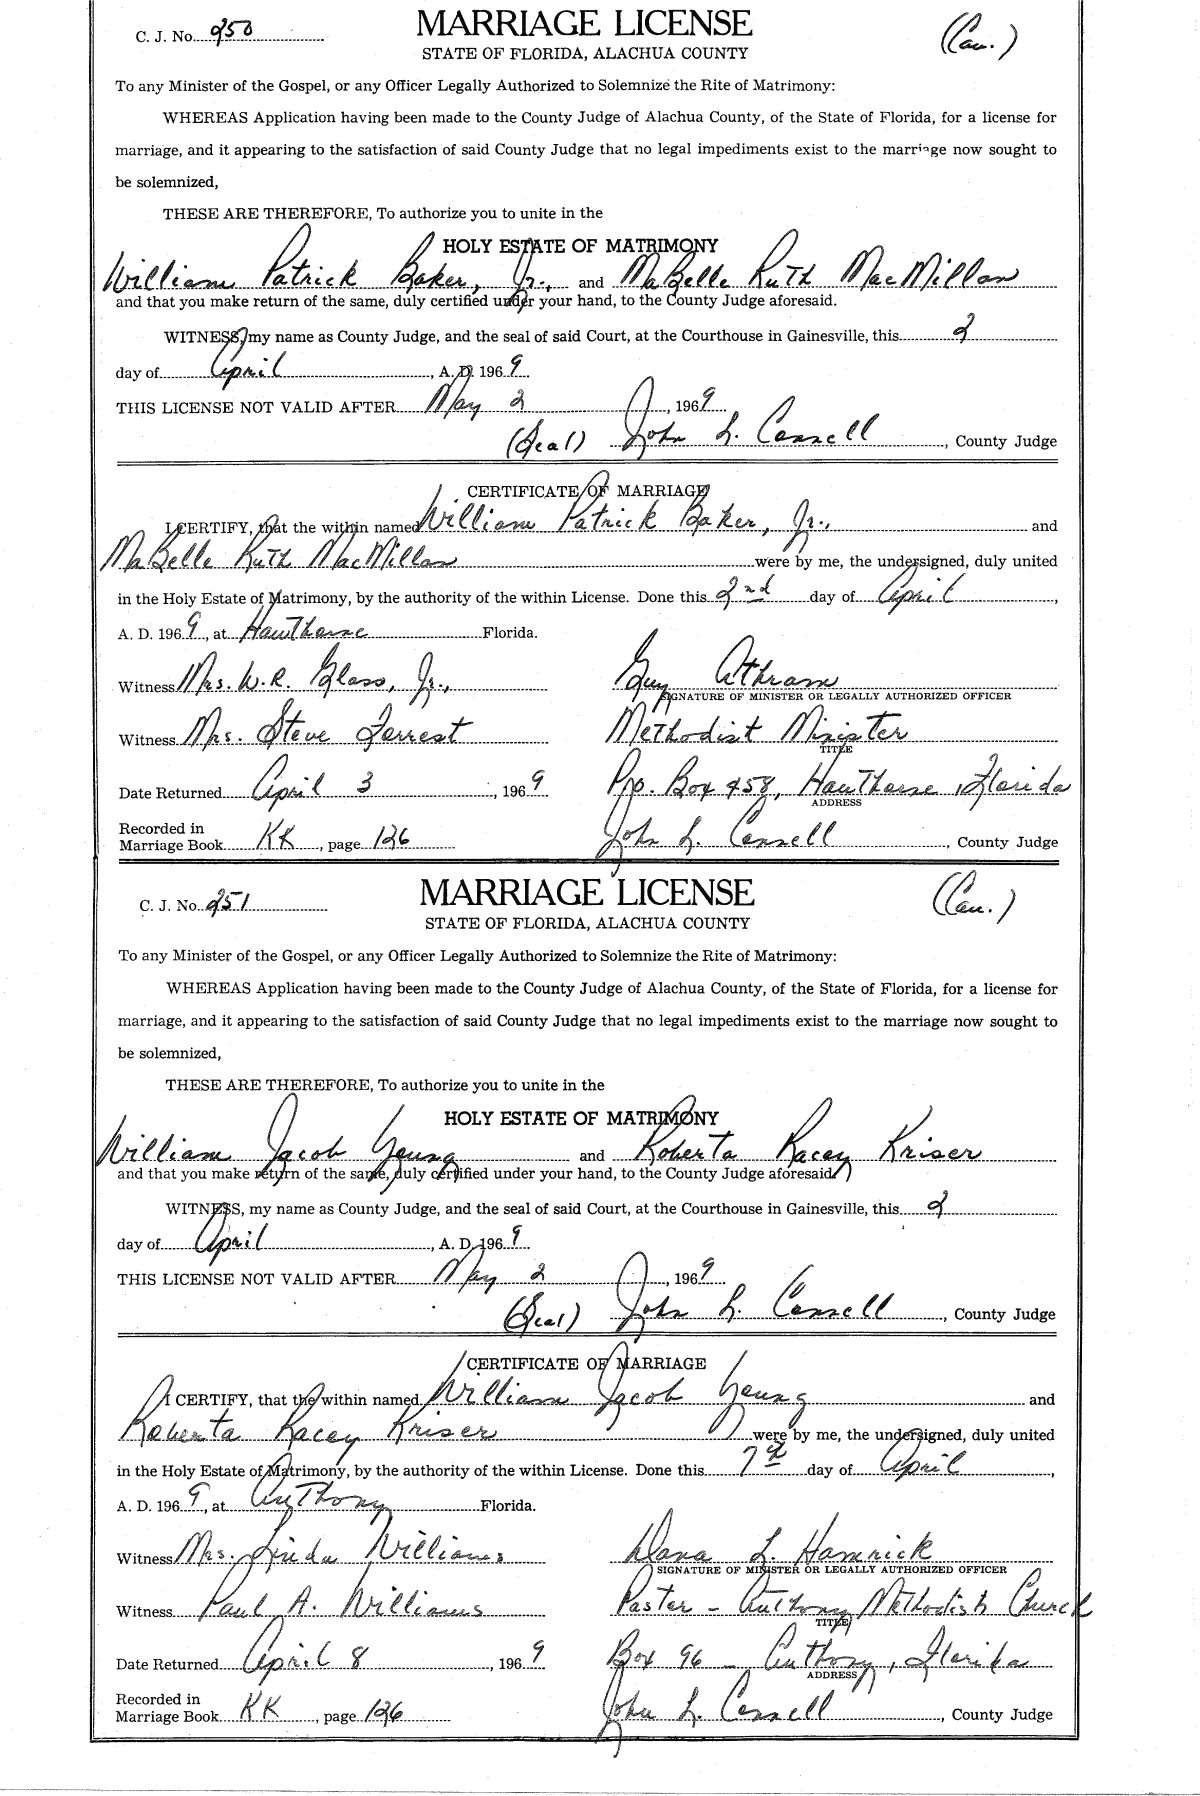 C. J. No. 250
MARRIAGE LICENSE
(Cau.)
STATE OF FLORIDA, ALACHUA COUNTY
To any Minister of the Gospel, or any Officer Legally Authorized to Solemnize the Rite of Matrimony:
WHEREAS Application having been made to the County Judge of Alachua County, of the State of Florida, for a license for
marriage, and it appearing to the satisfaction of said County Judge that no legal impediments exist to the marriage now sought to
be solemnized,
THESE ARE THEREFORE, To authorize you to unite in the
HOLY ESTATE OF MATRIMONY
William Patrick Baker, Jr., and MaBelle Ruth MacMillan
and that you make return of the same, duly certified under your hand, to the County Judge aforesaid.
WITNESS, my name as County Judge, and the seal of said Court, at the Courthouse in Gainesville, this 2
day of April, A. D. 1969
THIS LICENSE NOT VALID AFTER May 2, 1969
(Seal) John L. Connell, County Judge
CERTIFICATE OF MARRIAGE
I CERTIFY, that the within named William Patrick Baker, Jr., and
MaBelle Ruth MacMillan were by me, the undersigned, duly united
in the Holy Estate of Matrimony, by the authority of the within License. Done this 2nd day of April,
A. D. 1969, at Hawthorne Florida.
Witness Mrs. W. R. Glass, Jr., Guy Athram
SIGNATURE OF MINISTER OR LEGALLY AUTHORIZED OFFICER
Witness Mrs. Steve Forrest Methodist Minister
TITLE
Date Returned April 3, 1969 P.o. Box 458, Hawthorne, Florida
ADDRESS
Recorded in
Marriage Book KK, page 126 John L. Connell, County Judge
C. J. No. 251
MARRIAGE LICENSE
(Cau.)
STATE OF FLORIDA, ALACHUA COUNTY
To any Minister of the Gospel, or any Officer Legally Authorized to Solemnize the Rite of Matrimony:
WHEREAS Application having been made to the County Judge of Alachua County, of the State of Florida, for a license for
marriage, and it appearing to the satisfaction of said County Judge that no legal impediments exist to the marriage now sought to
be solemnized,
THESE ARE THEREFORE, To authorize you to unite in the
HOLY ESTATE OF MATRIMONY
William Jacob Young and Roberta Racey Kriser
and that you make return of the same, duly certified under your hand, to the County Judge aforesaid.
WITNESS, my name as County Judge, and the seal of said Court, at the Courthouse in Gainesville, this 2
day of April, A. D. 1969
THIS LICENSE NOT VALID AFTER May 2, 1969
(Seal) John L. Connell, County Judge
CERTIFICATE OF MARRIAGE
I CERTIFY, that the within named William Jacob Young and
Roberta Racey Kriser were by me, the undersigned, duly united
in the Holy Estate of Matrimony, by the authority of the within License. Done this 7th day of April,
A. D. 1969, at Anthony Florida.
Witness Mrs. Linda Williams Dana L. Hamrick
SIGNATURE OF MINISTER OR LEGALLY AUTHORIZED OFFICER
Witness Paul A. Williams Pastor - Anthony Methodist Church
TITLE
Date Returned April 8, 1969 Box 96 - Anthony, Florida
ADDRESS
Recorded in
Marriage Book KK, page 126 John L. Connell, County Judge